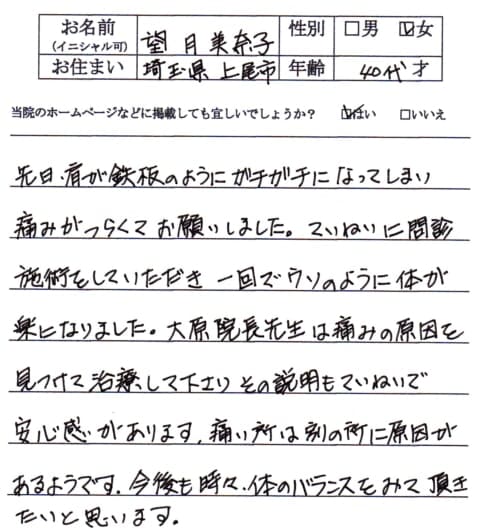 お名前 (イニシャル可) 望月美奈子 性別 □男 ☑女
お住まい 埼玉県上尾市 年齢 40代 才
当院のホームページなどに掲載しても宜しいでしょうか？ ☑はい □いいえ
先日、肩が鉄板のようにガチガチになってしまい
痛みがつらくてお願いしました。ていねいに問診
施術をしていただき一回でウソのように体が
楽になりました。大原院長先生は痛みの原因を
見つけて治療して下さりその説明もていねいで
安心感があります。痛い所は別の所に原因が
あるようです。今後も時々、体のバランスをみて頂き
たいと思います。